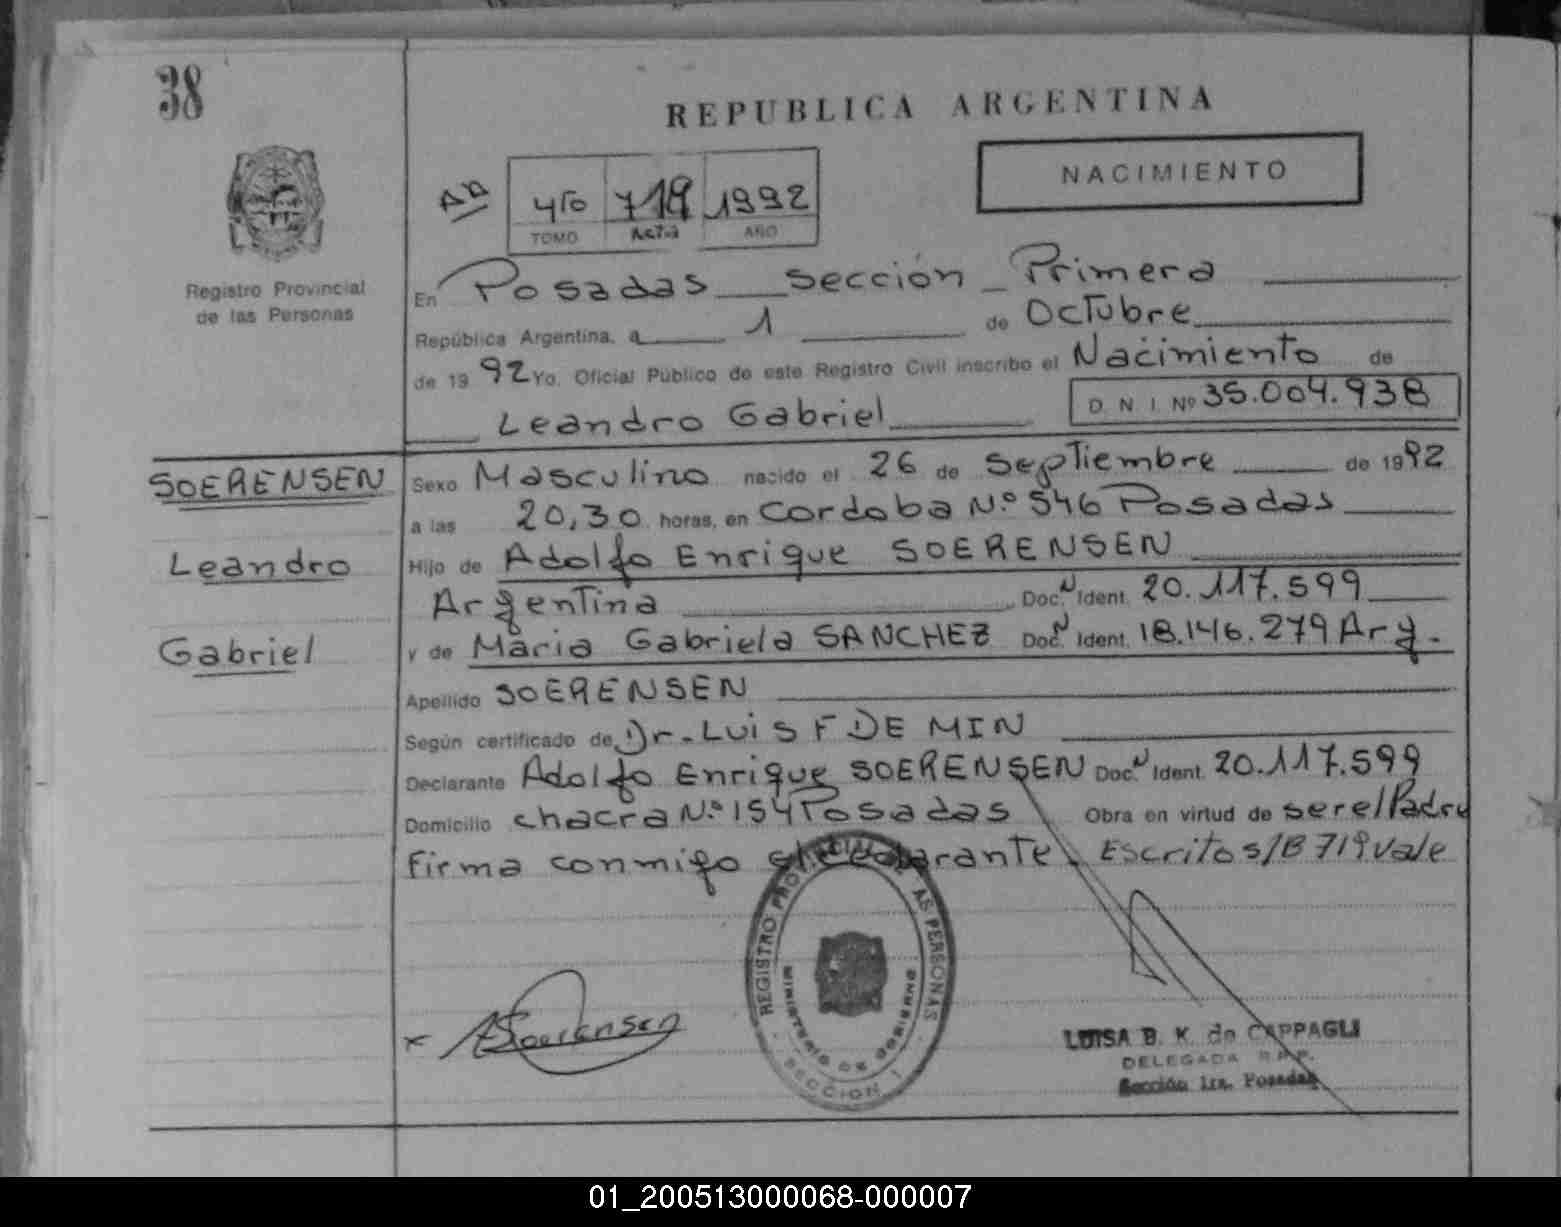 38
REPUBLICA ARGENTINA
NACIMIENTO
4to 719 1992
TOMO Acta AÑO
Registro Provincial
de las Personas
En Posadas sección Primera
República Argentina, a 1 de Octubre
de 1992 Yo, Oficial Público de este Registro Civil inscribo el Nacimiento de
Leandro Gabriel
D. N. I. Nº 35.004.938
SOERENSEN
Leandro
Gabriel
Sexo Masculino nacido el 26 de Septiembre de 1992
a las 20,30 horas, en Cordoba N.º 546 Posadas
Hijo de Adolfo Enrique SOERENSEN
Argentina Doc. N Ident. 20.117.599
y de Maria Gabriela SANCHEZ Doc. N Ident. 18.146.279 Arg.
Apellido SOERENSEN
Según certificado de Dr. Luis F DE MIN
Declarante Adolfo Enrique SOERENSEN Doc. N Ident. 20.117.599
Domicilio chacra N.º 154 Posadas Obra en virtud de ser el Padre
Firma conmigo el declarante. Escrito s/B 719 vale
REGISTRO PROVINCIAL DE LAS PERSONAS
MINISTERIO DE GOBIERNO
SECCION 1
x ASoerensen
LUISA B. K. de CAPPAGLI
DELEGADA R.P.P.
Sección 1ra. Posadas
01_200513000068-000007